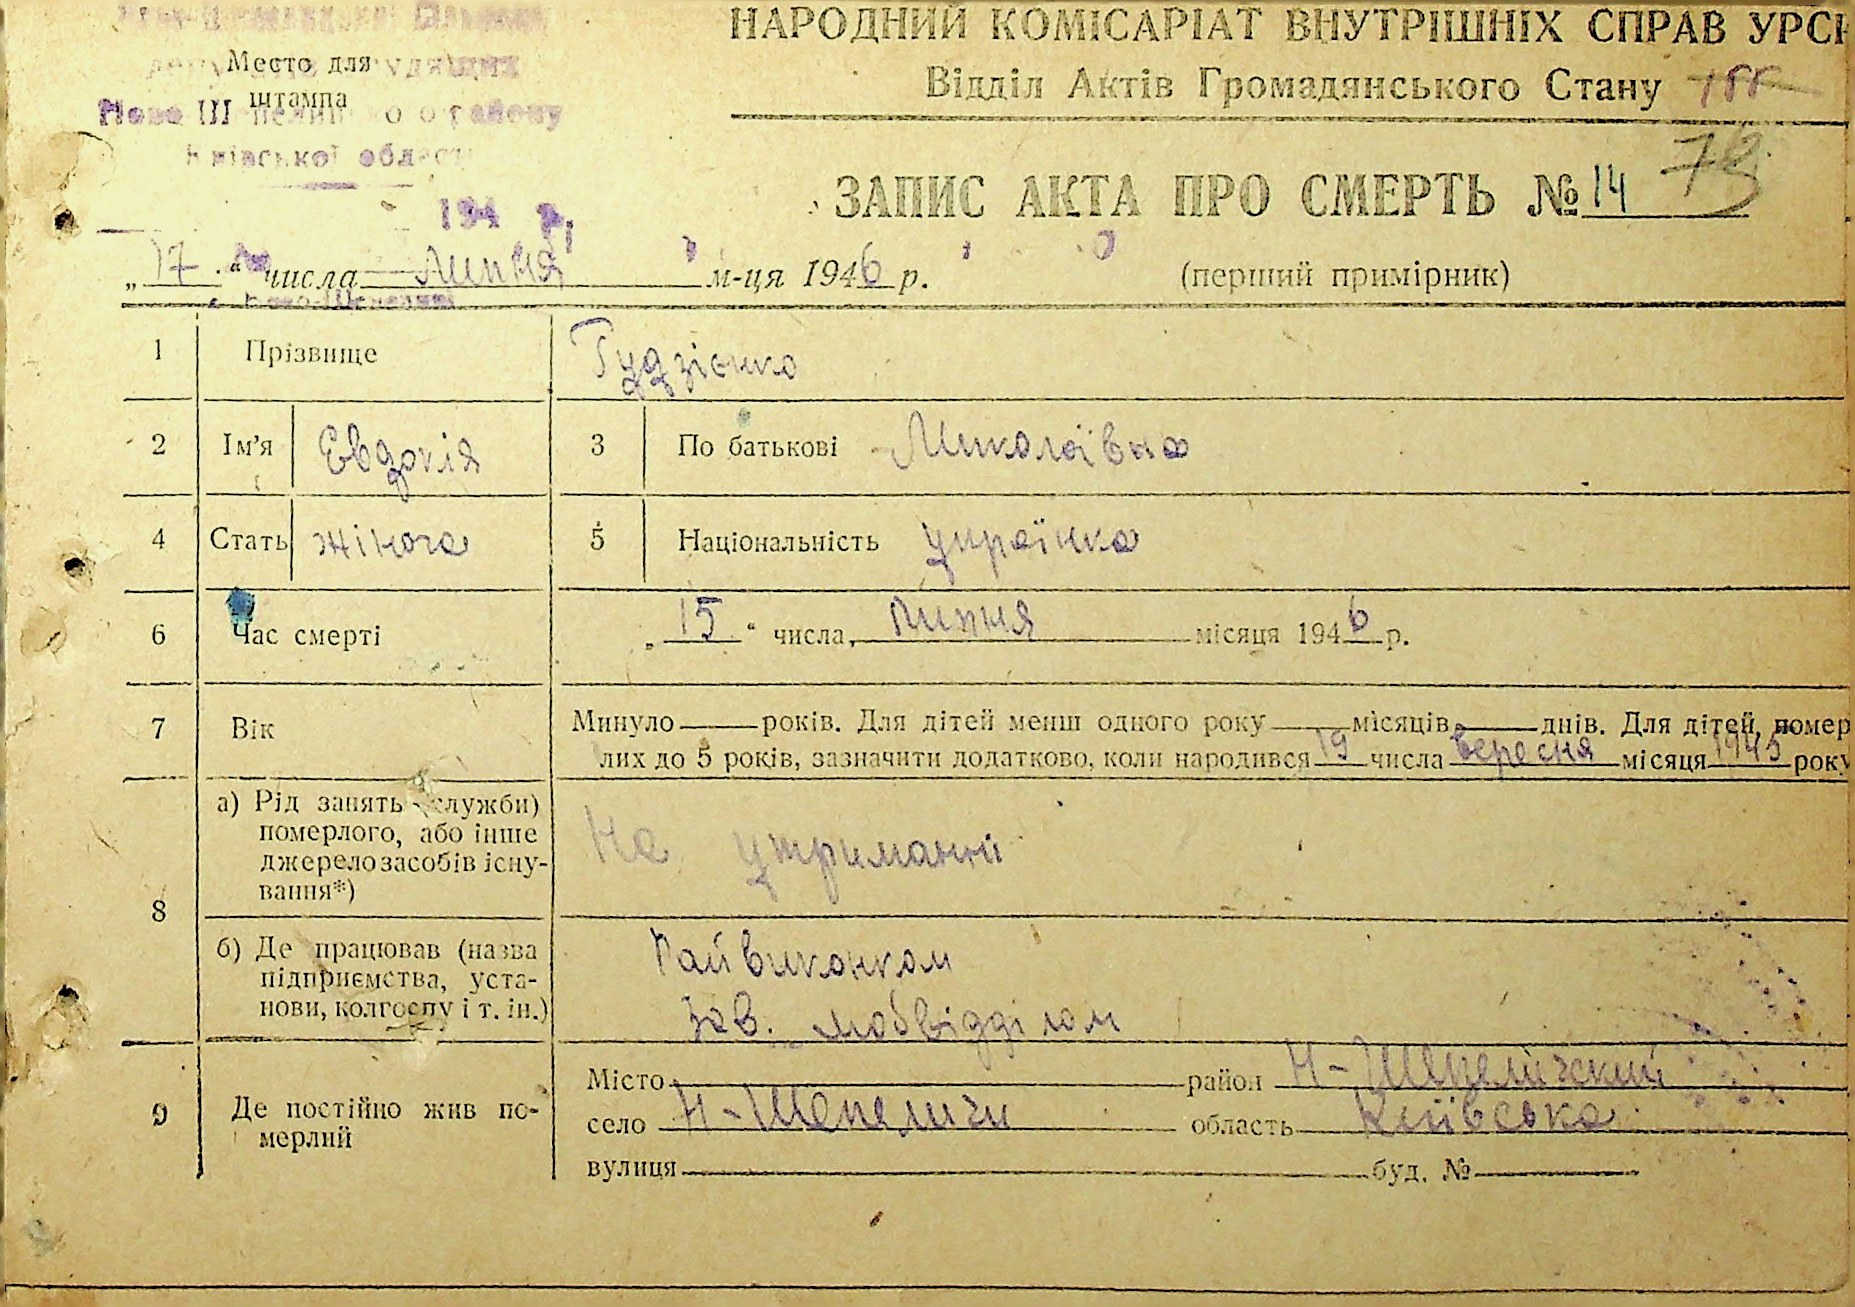 НАРОДНИЙ КОМІСАРІАТ ВНУТРІШНІХ СПРАВ УРСР
Відділ Актів Громадянського Стану
Место для
штампа
Ново Ш районy
Київської області
194 р.
ЗАПИС АКТА ПРО СМЕРТЬ №14 78
„17“ числа липня м-ця 1946 р. (перший примірник)
1 Прізвище Гудзієнко
2 Ім'я Євдокія 3 По батькові Миколаївна
4 Стать жіноча 5 Національність українка
6 Час смерті „15“ числа, липня місяця 1946 р.
7 Вік Минуло років. Для дітей менш одного року місяців днів. Для дітей, помер
лих до 5 років, зазначити додатково, коли народився 19 числа вересня місяця 1945 року
8 а) Рід занять (служби)
померлого, або інше
джерело засобів існу-
вання*) На утриманні
б) Де працював (назва
підприємства, уста-
нови, колгоспу і т. ін.) Райвиконком
зав. мобвідділом
9 Де постійно жив по-
мерлий
Місто район Н-Шепелічский
село Н-Шепеличи область Київська
вулиця буд. №